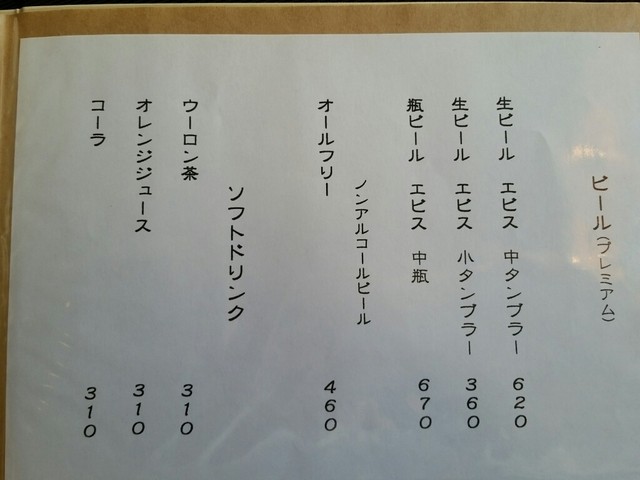 ビール(プレミアム)
生ビール エビス 中タンブラー 620
生ビール エビス 小タンブラー 360
瓶ビール エビス 中瓶 670
ノンアルコールビール
オールフリー 460
ソフトドリンク
ウーロン茶 310
オレンジジュース 310
コーラ 310